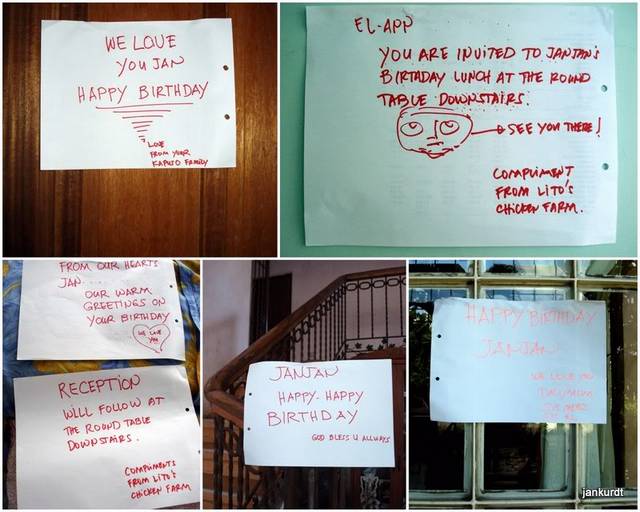 WE LOVE
YOU JAN
HAPPY BIRTHDAY
LOVE
FROM YOUR
KAPUSO FAMILY
EL-APP
YOU ARE INVITED TO JANJAN'S
BIRTHDAY LUNCH AT THE ROUND
TABLE DOWNSTAIRS.
SEE YOU THERE!
COMPLIMENT
FROM LITO'S
CHICKEN FARM.
FROM OUR HEARTS
JAN
OUR WARM
GREETINGS ON
YOUR BIRTHDAY
WE LOVE
YOU
RECEPTION
WILL FOLLOW AT
THE ROUND TABLE
DOWNSTAIRS.
COMPLIMENTS
FROM LITO'S
CHICKEN FARM
JANJAN
HAPPY-HAPPY
BIRTHDAY
GOD BLESS U ALLWAYS
HAPPY BIRTHDAY
JANJAN
WE LOVE YOU
jankurdt